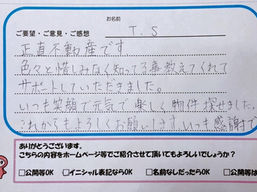 お名前
ご要望・ご意見・ご感想
T.S
正直不動産です
色々と惜しみなく知ってる事教えてくれて
サポートしていただきました。
いつも笑顔で元気で楽しく物件探せました。
これからもよろしくお願いします いつも感謝で
ありがとうございます。
こちらの内容をホームページ等でご紹介させて頂いてもよろしいでしょうか?
□公開等OK □イニシャル表記ならOK □名前なしだったらOK □公開等